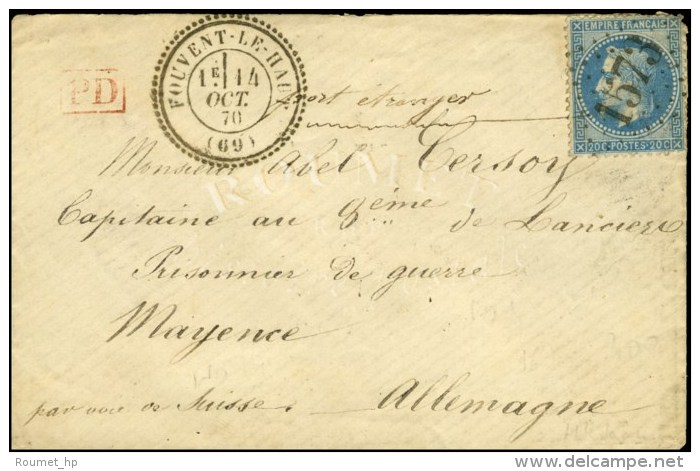 FOUVENT-LE-HAUT
1E 14
OCT.
70
(69)
PD
EMPIRE FRANÇAIS
1573
20C POSTES 20C
port étranger
Monsieur Abel Tersoy
Capitaine au 8ème de Lanciers
Prisonnier de guerre
Mayence
par voie de Suisse. Allemagne
ROUMET
© Roumet_hp
delcampe.net